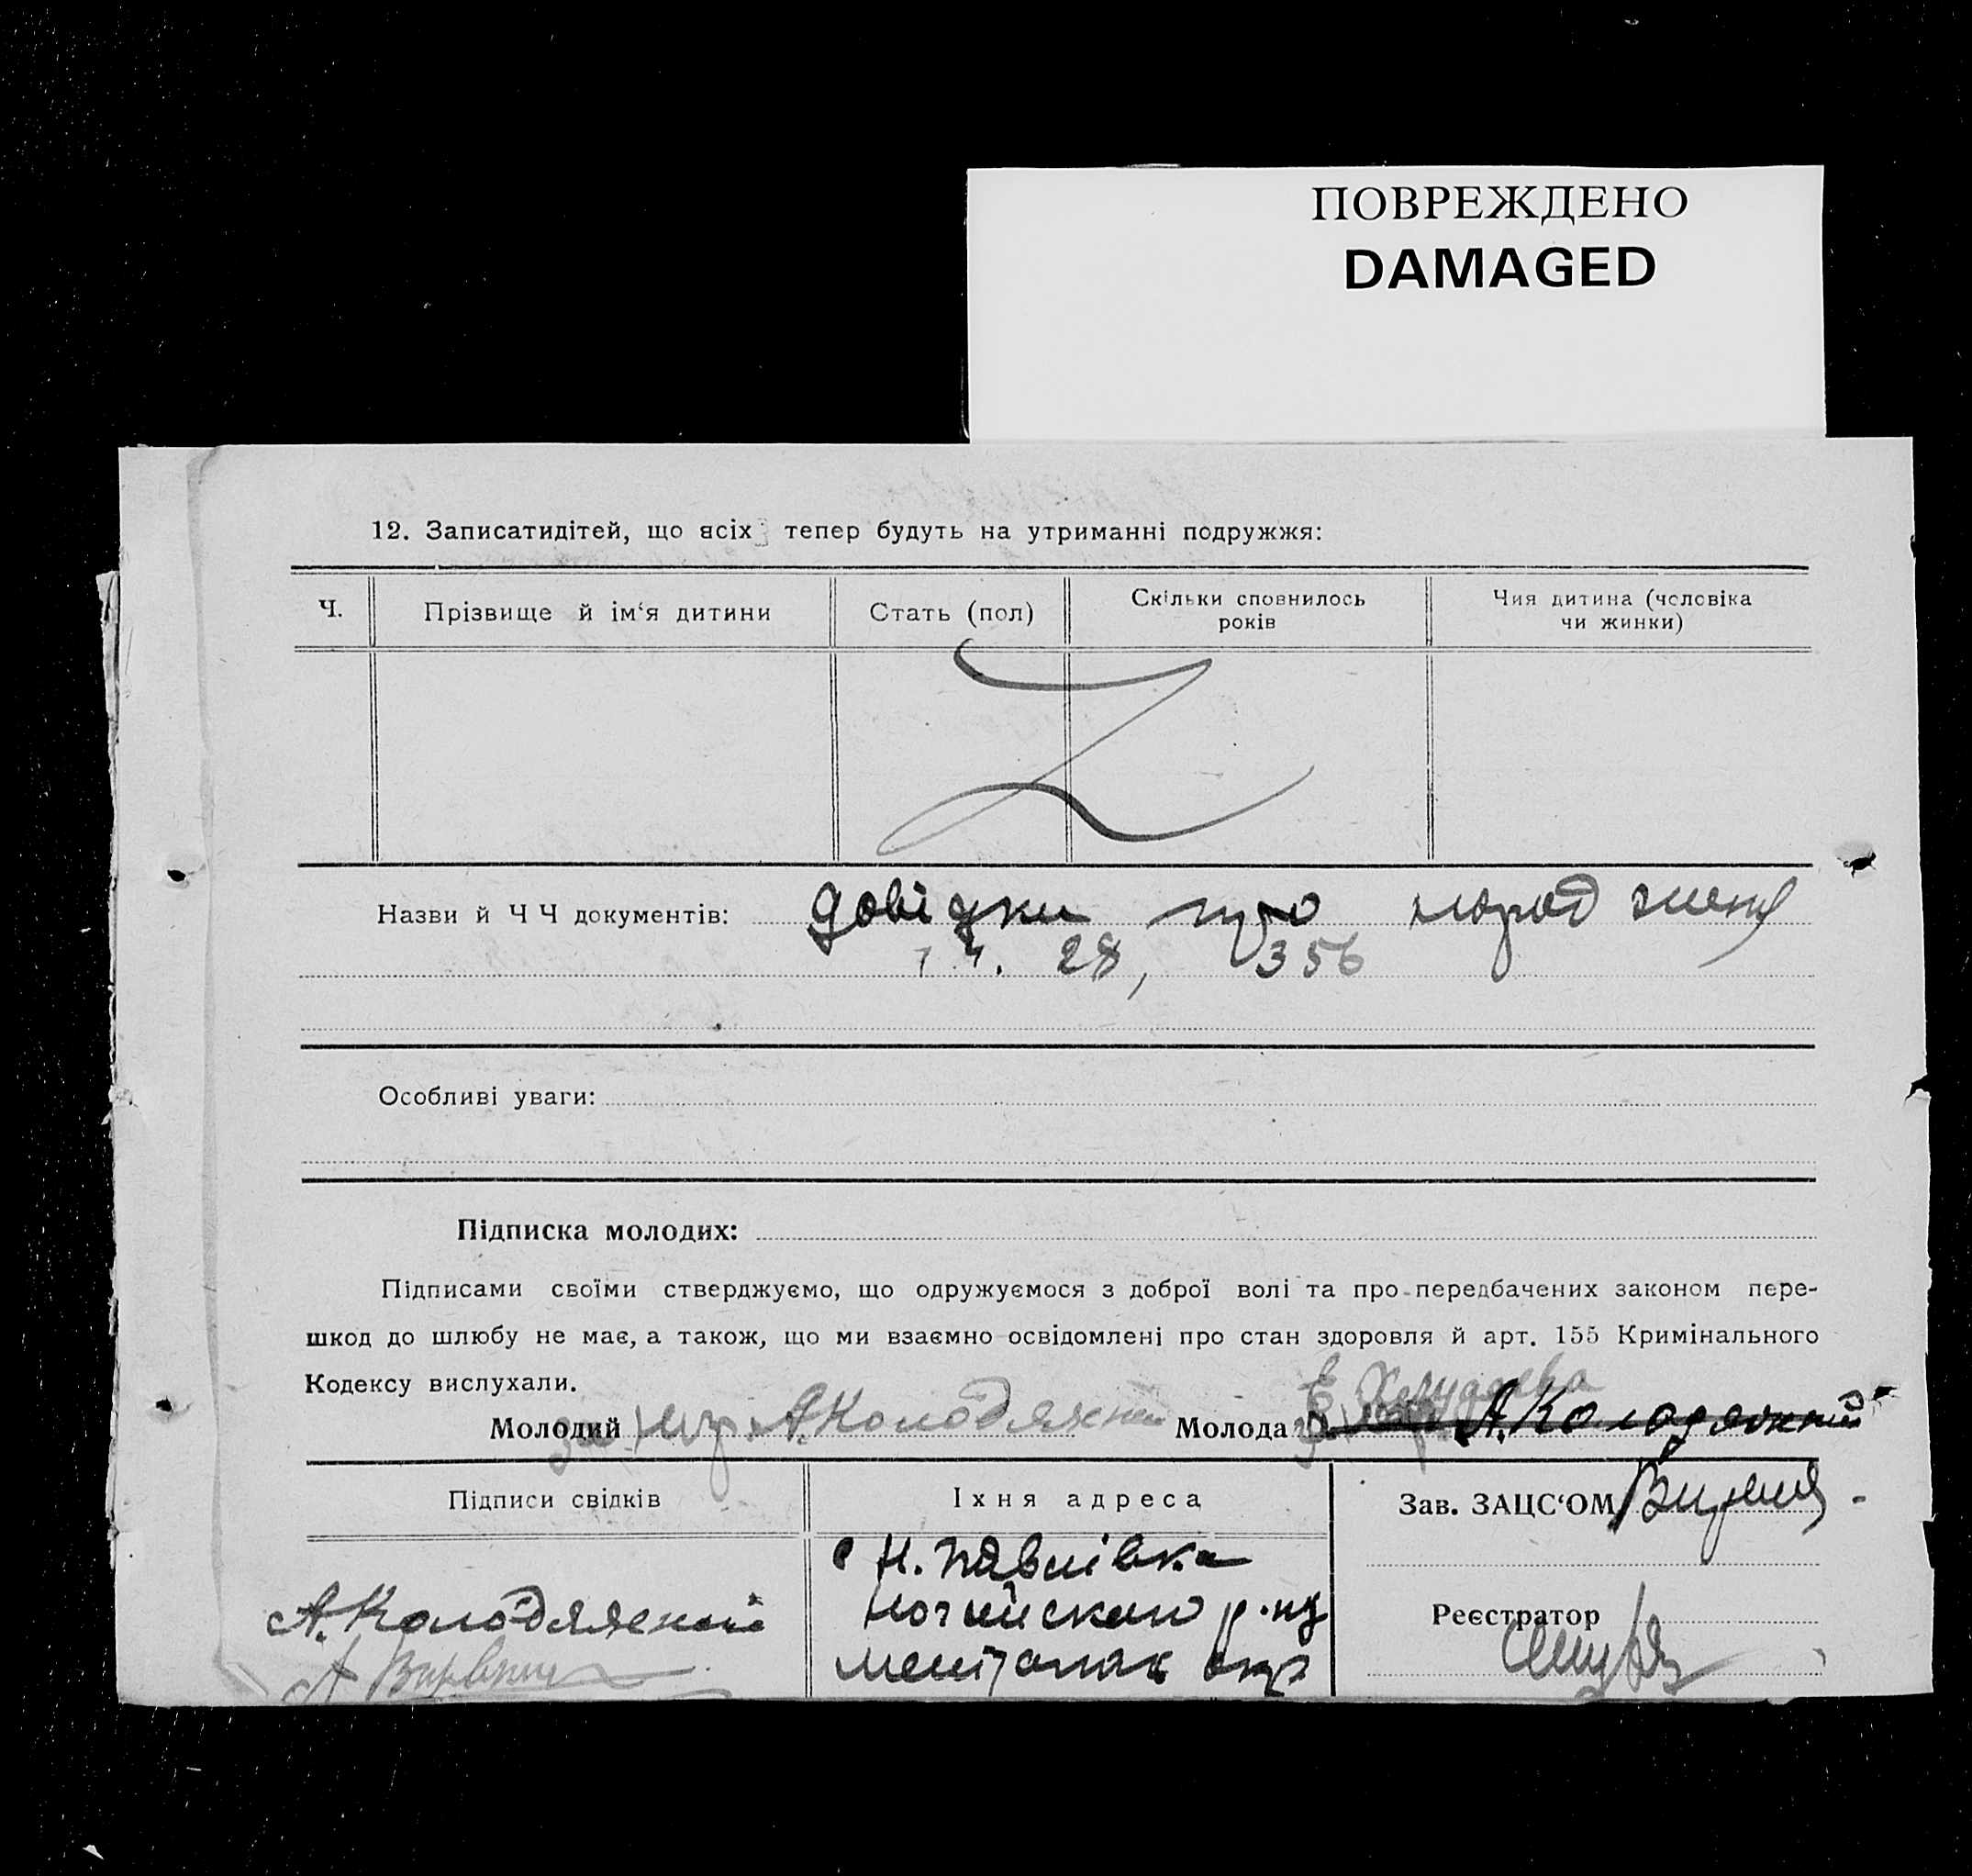 ПОВРЕЖДЕНО
DAMAGED
12. Записатидітей, що всіх тепер будуть на утриманні подружжя:
Ч.
Прізвище й ім‘я дитини
Стать (пол)
Скільки сповнилось
років
Чия дитина (человіка
чи жинки)
Назви й Ч Ч документів: довідки про народження
ч. 28, 356
Особливі уваги:
Підписка молодих:
Підписами своїми стверджуємо, що одружуємося з доброї волі та про передбачених законом пере-
шкод до шлюбу не має, а також, що ми взаємно освідомлені про стан здоровля й арт. 155 Кримінального
Кодексу вислухали.
Молодий А.Колодяжний Молода А.Колодяжний
Підписи свідків
Їхня адреса
Зав. ЗАЦС‘ОМ
с Н. Павлівка
А.Колодяжний
Ногайского р-ну
Реєстратор
Мелітопак окр